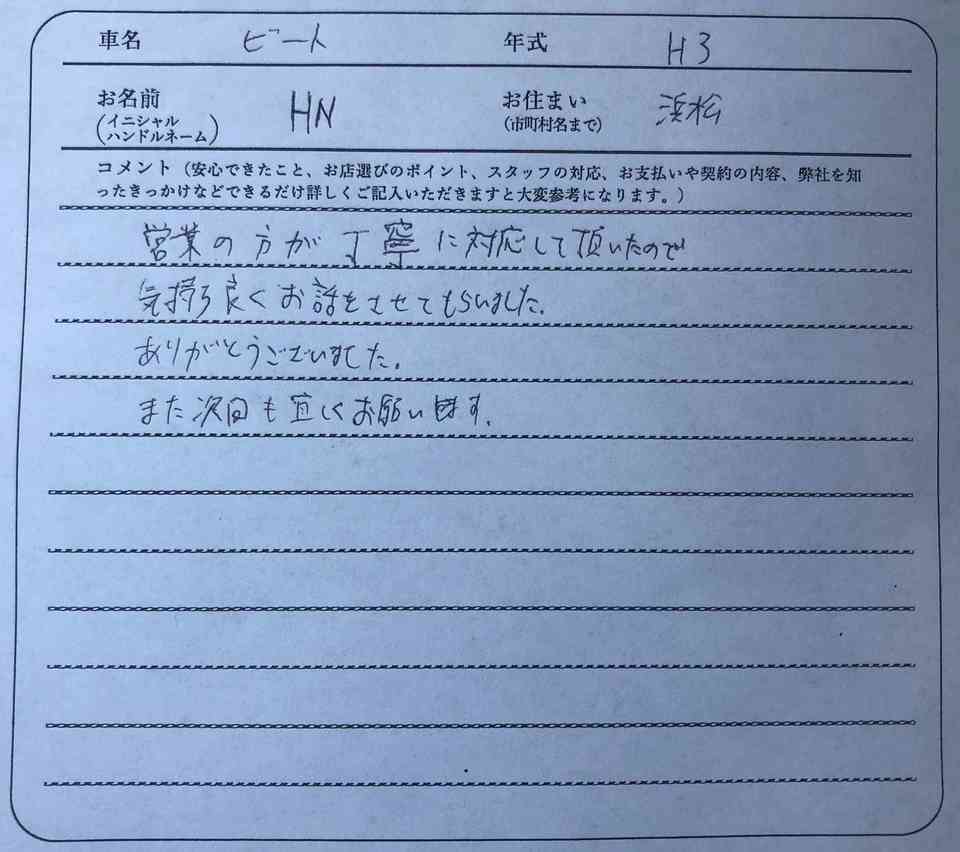 車名 ビート 年式 H3
お名前 (イニシャル ハンドルネーム) HN お住まい (市町村名まで) 浜松
コメント（安心できたこと、お店選びのポイント、スタッフの対応、お支払いや契約の内容、弊社を知
ったきっかけなどできるだけ詳しくご記入いただきますと大変参考になります。）
営業の方が丁寧に対応して頂いたので
気持ち良くお話をさせてもらいました。
ありがとうございました。
また次回も宜しくお願いします。